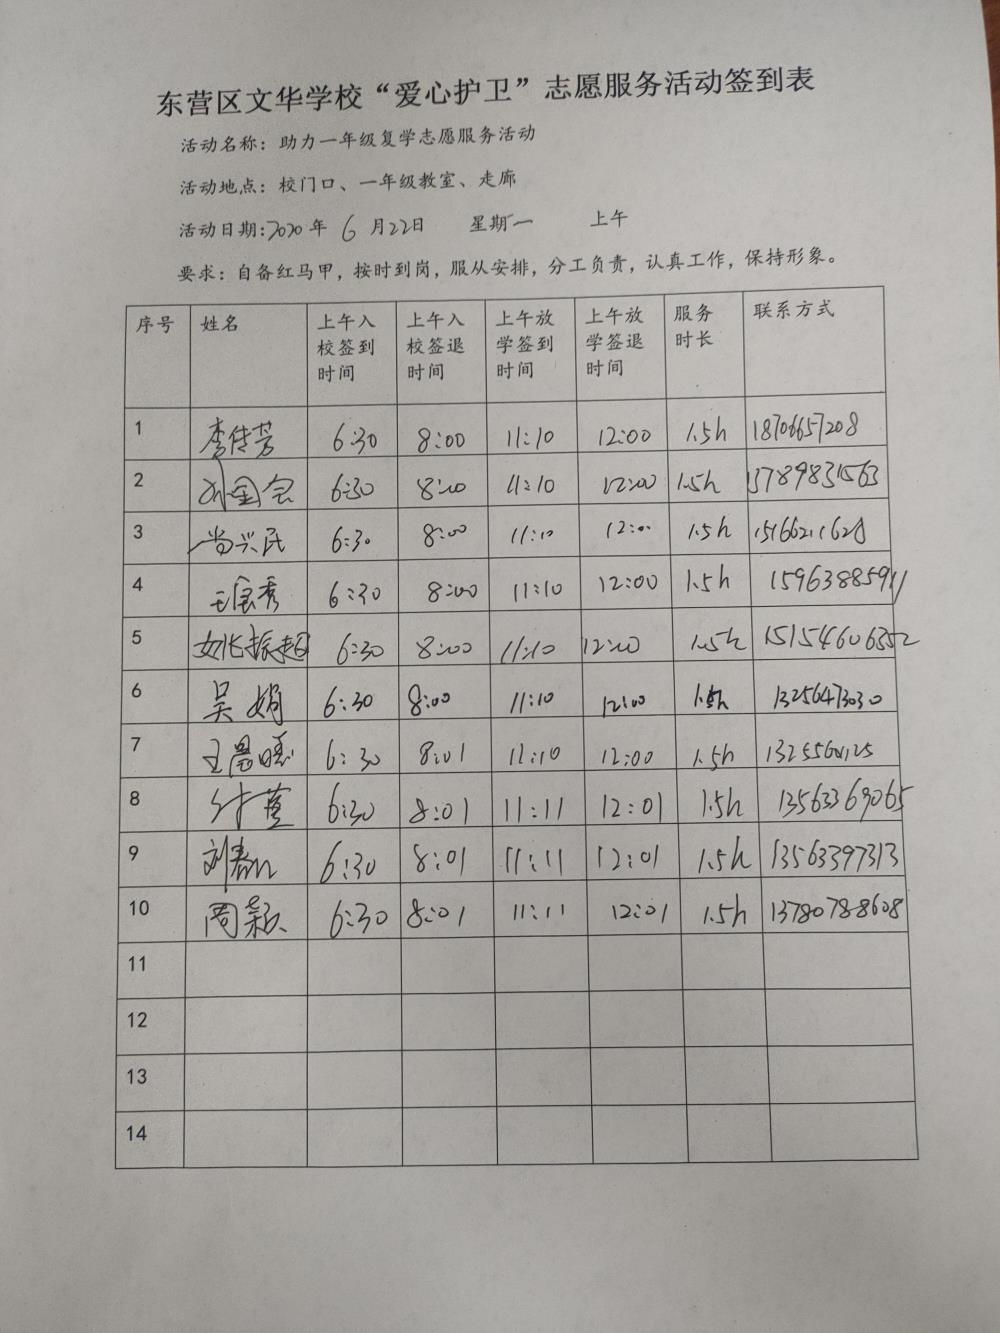 东营区文华学校“爱心护卫”志愿服务活动签到表
活动名称：助力一年级复学志愿服务活动
活动地点：校门口、一年级教室、走廊
活动日期:2020年 6 月22日 星期一 上午
要求：自备红马甲，按时到岗，服从安排，分工负责，认真工作，保持形象。
序号 姓名 上午入校签到时间 上午入校签退时间 上午放学签到时间 上午放学签退时间 服务时长 联系方式
1 李传芳 6:30 8:00 11:10 12:00 1.5h 18706657208
2 刘金会 6:30 8:00 11:10 12:00 1.5h 13789831563
3 尚兴民 6:30 8:00 11:10 12:00 1.5h 15166211628
4 王金秀 6:30 8:00 11:10 12:00 1.5h 15963885911
5 姚振超 6:30 8:00 11:10 12:00 1.5h 15154606352
6 吴娟 6:30 8:00 11:10 12:00 1.5h 13256473030
7 王晨曦 6:30 8:01 11:10 12:00 1.5h
8 6:30 8:01 11:11 12:01 1.5h 13563369065
9 刘春 6:30 8:01 11:11 12:01 1.5h 13563397313
10 周颖 6:30 8:01 11:11 12:01 1.5h 13780788608
11
12
13
14